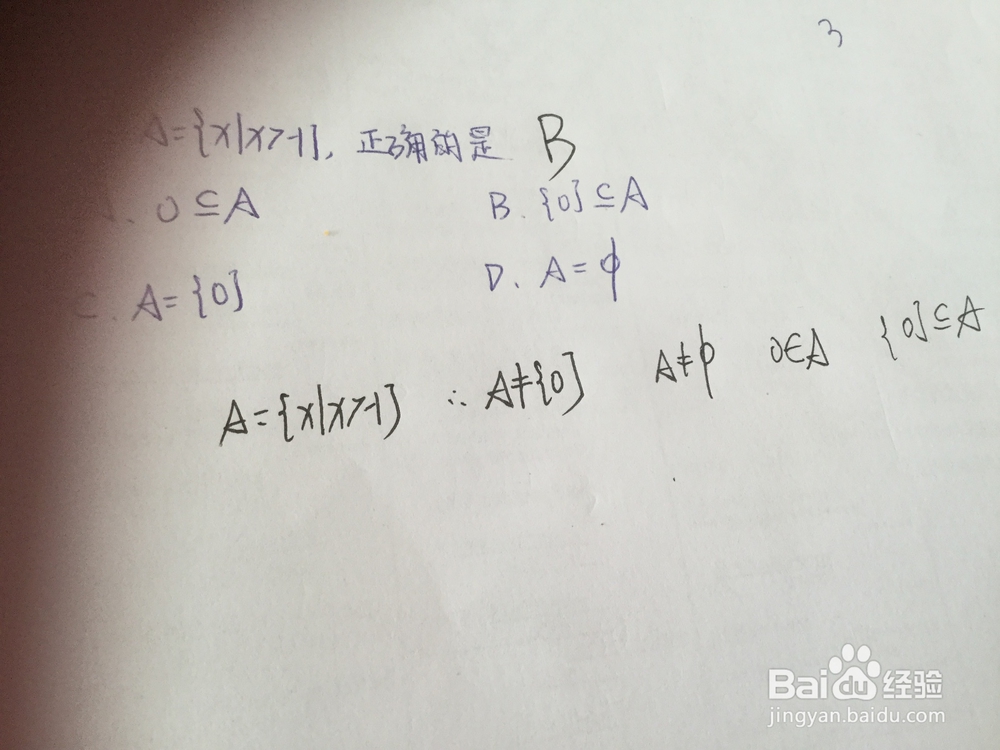 3
A={x|x>-1}, 正确的是 B
A. 0⊆A B. {0}⊆A
C. A={0} D. A=φ
A={x|x>-1} ∴ A≠{0} A≠φ 0∈A {0}⊆A
Baidu经验
jingyan.baidu.com